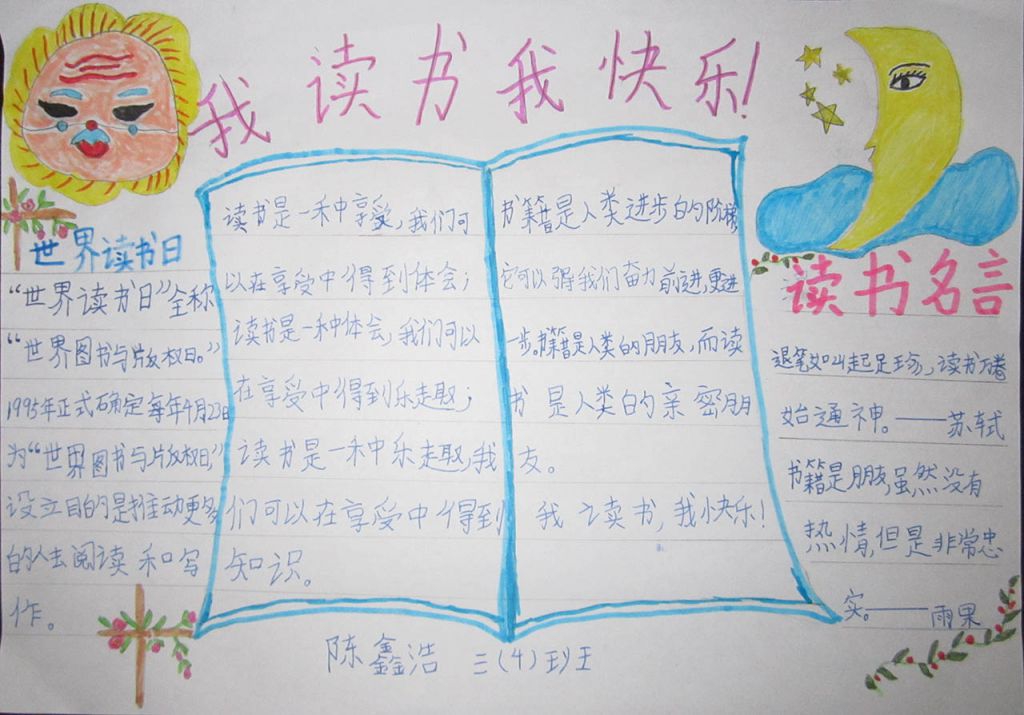 我读书我快乐!
世界读书日
“世界读书日”全称
“世界图书与版权日。”
1995年正式确定每年4月23日
为“世界图书与版权日,”
设立目的是推动更多
的人去阅读和写
作。
读书是一种享受,我们可
以在享受中得到体会;
读书是一种体会,我们可以
在享受中得到乐趣;
读书是一种乐趣,我
们可以在享受中得到
知识。
书籍是人类进步的阶梯
它可以强我们奋力前进,更进
一步。书籍是人类的朋友,而读
书是人类的亲密朋
友。
我读书,我快乐!
读书名言
退笔如山起足珍,读书万卷
始通神。——苏轼
书籍是朋友,虽然没有
热情,但是非常忠
实。——雨果
陈鑫浩 三(4)班